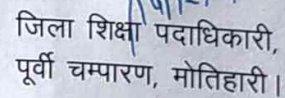 जिला शिक्षा पदाधिकारी,
पूर्वी चम्पारण, मोतिहारी।